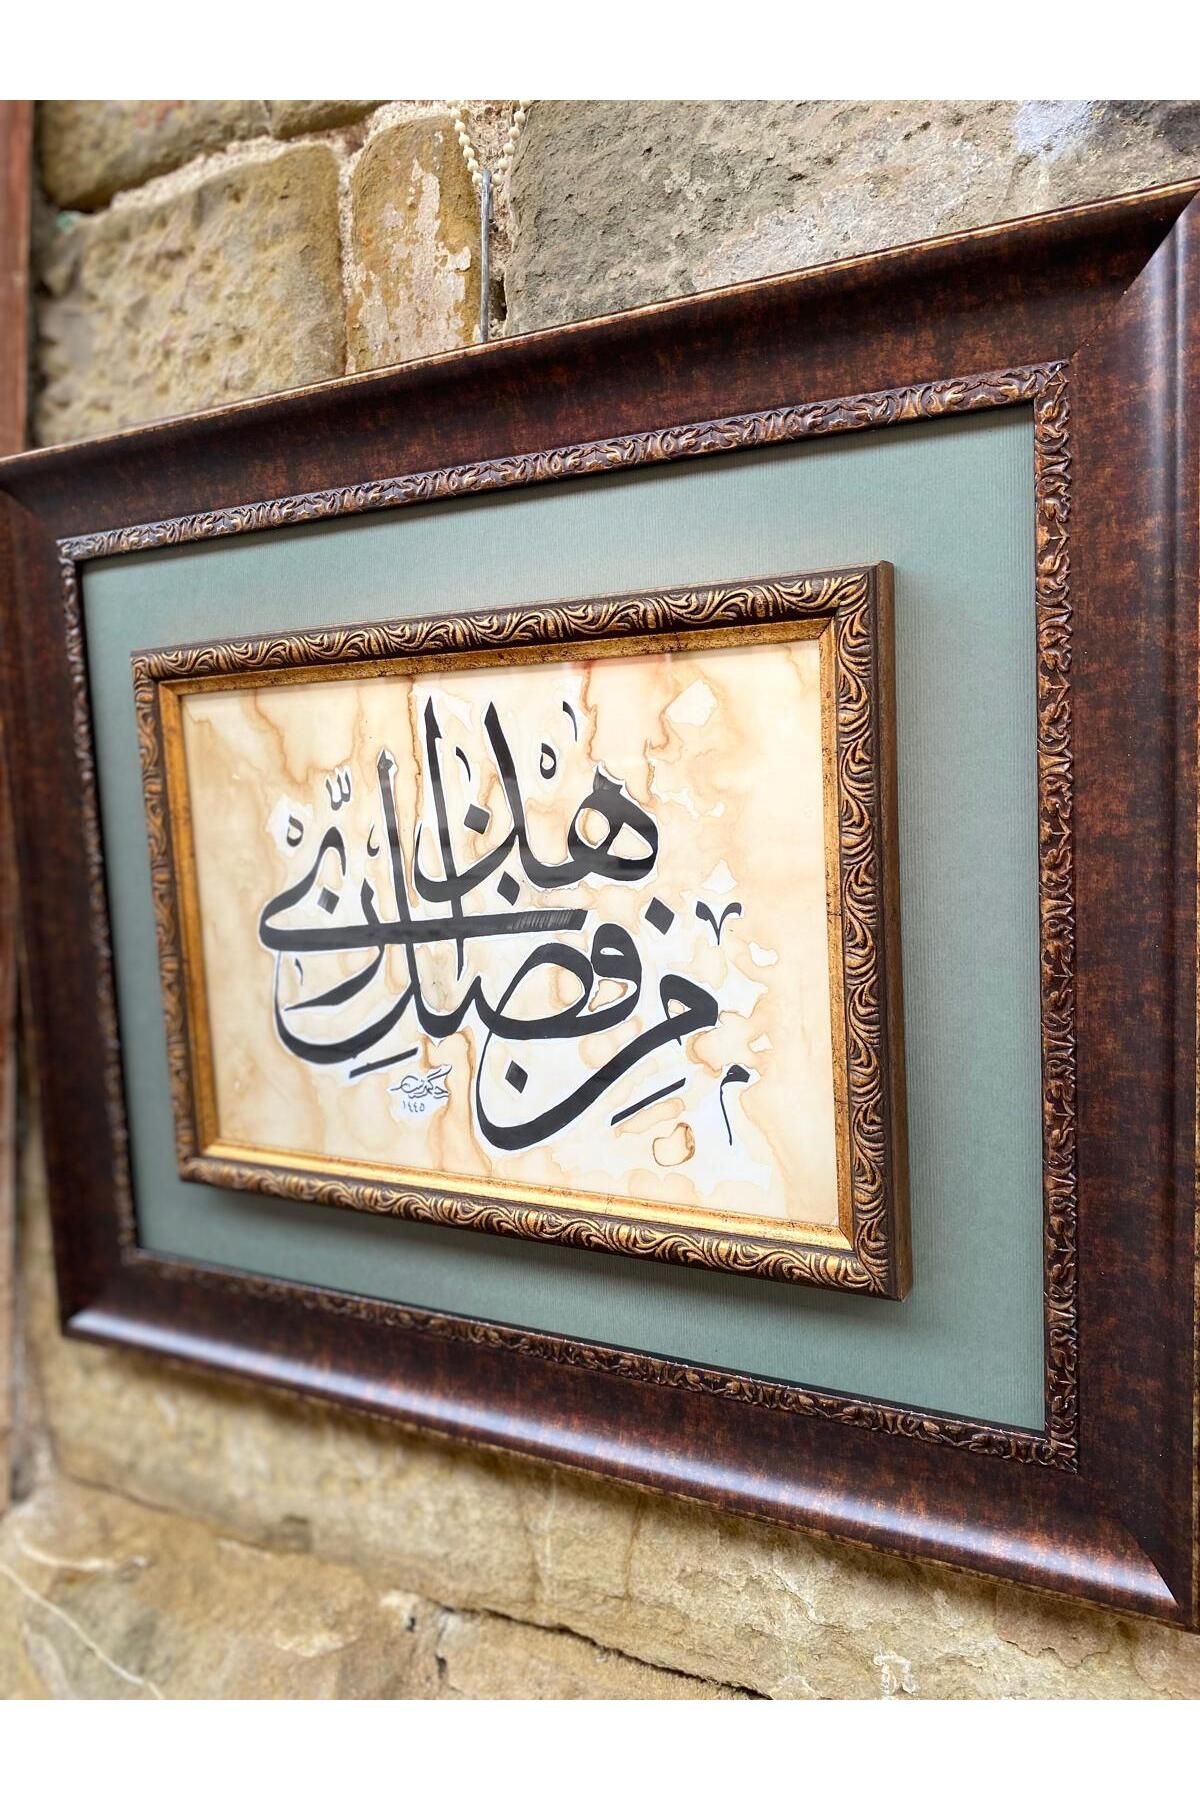 هٰذَا
مِنْ فَضْلِ رَبِّي
١٤٤٥